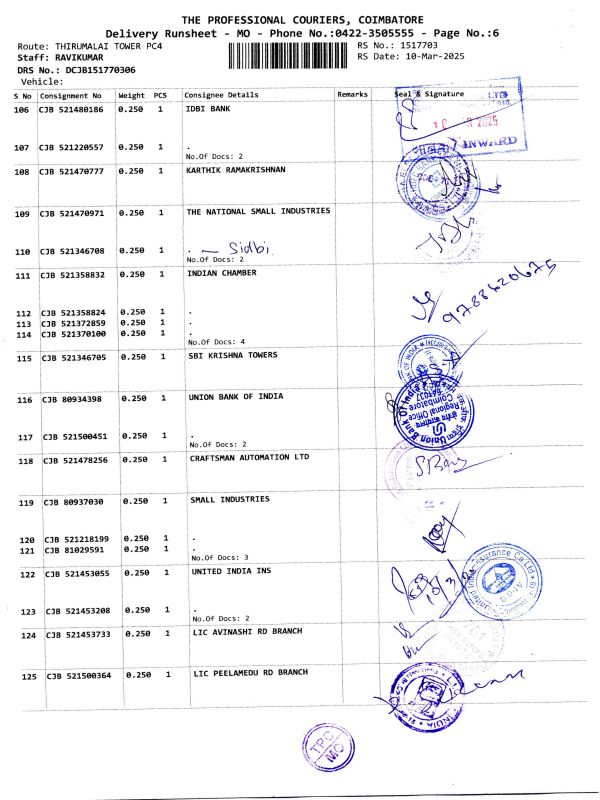 THE PROFESSIONAL COURIERS, COIMBATORE
Delivery Runsheet - MO - Phone No.:0422-3505555 - Page No.:6
Route: THIRUMALAI TOWER PC4 RS No.: 1517703
Staff: RAVIKUMAR RS Date: 10-Mar-2025
DRS No.: DCJB151770306
Vehicle:
S No Consignment No Weight PCS Consignee Details Remarks Seal & Signature
106 CJB 521480186 0.250 1 IDBI BANK
2025
INWARD
107 CJB 521220557 0.250 1 .
No.Of Docs: 2
108 CJB 521470777 0.250 1 KARTHIK RAMAKRISHNAN
109 CJB 521470971 0.250 1 THE NATIONAL SMALL INDUSTRIES
110 CJB 521346708 0.250 1 . - Sidbi
No.Of Docs: 2
111 CJB 521358832 0.250 1 INDIAN CHAMBER
9788620675
112 CJB 521358824 0.250 1 .
113 CJB 521372859 0.250 1 .
114 CJB 521370100 0.250 1 .
No.Of Docs: 4
115 CJB 521346705 0.250 1 SBI KRISHNA TOWERS
116 CJB 80934398 0.250 1 UNION BANK OF INDIA
Union Bank Of India
Regional Office
Coimbatore
117 CJB 521500451 0.250 1 .
No.Of Docs: 2
118 CJB 521478256 0.250 1 CRAFTSMAN AUTOMATION LTD
119 CJB 80937030 0.250 1 SMALL INDUSTRIES
120 CJB 521218199 0.250 1 .
121 CJB 81029591 0.250 1 .
No.Of Docs: 3
122 CJB 521453055 0.250 1 UNITED INDIA INS
Insurance Co Ltd
123 CJB 521453208 0.250 1 .
No.Of Docs: 2
124 CJB 521453733 0.250 1 LIC AVINASHI RD BRANCH
125 CJB 521500364 0.250 1 LIC PEELAMEDU RD BRANCH
INDIA
TPC
MO